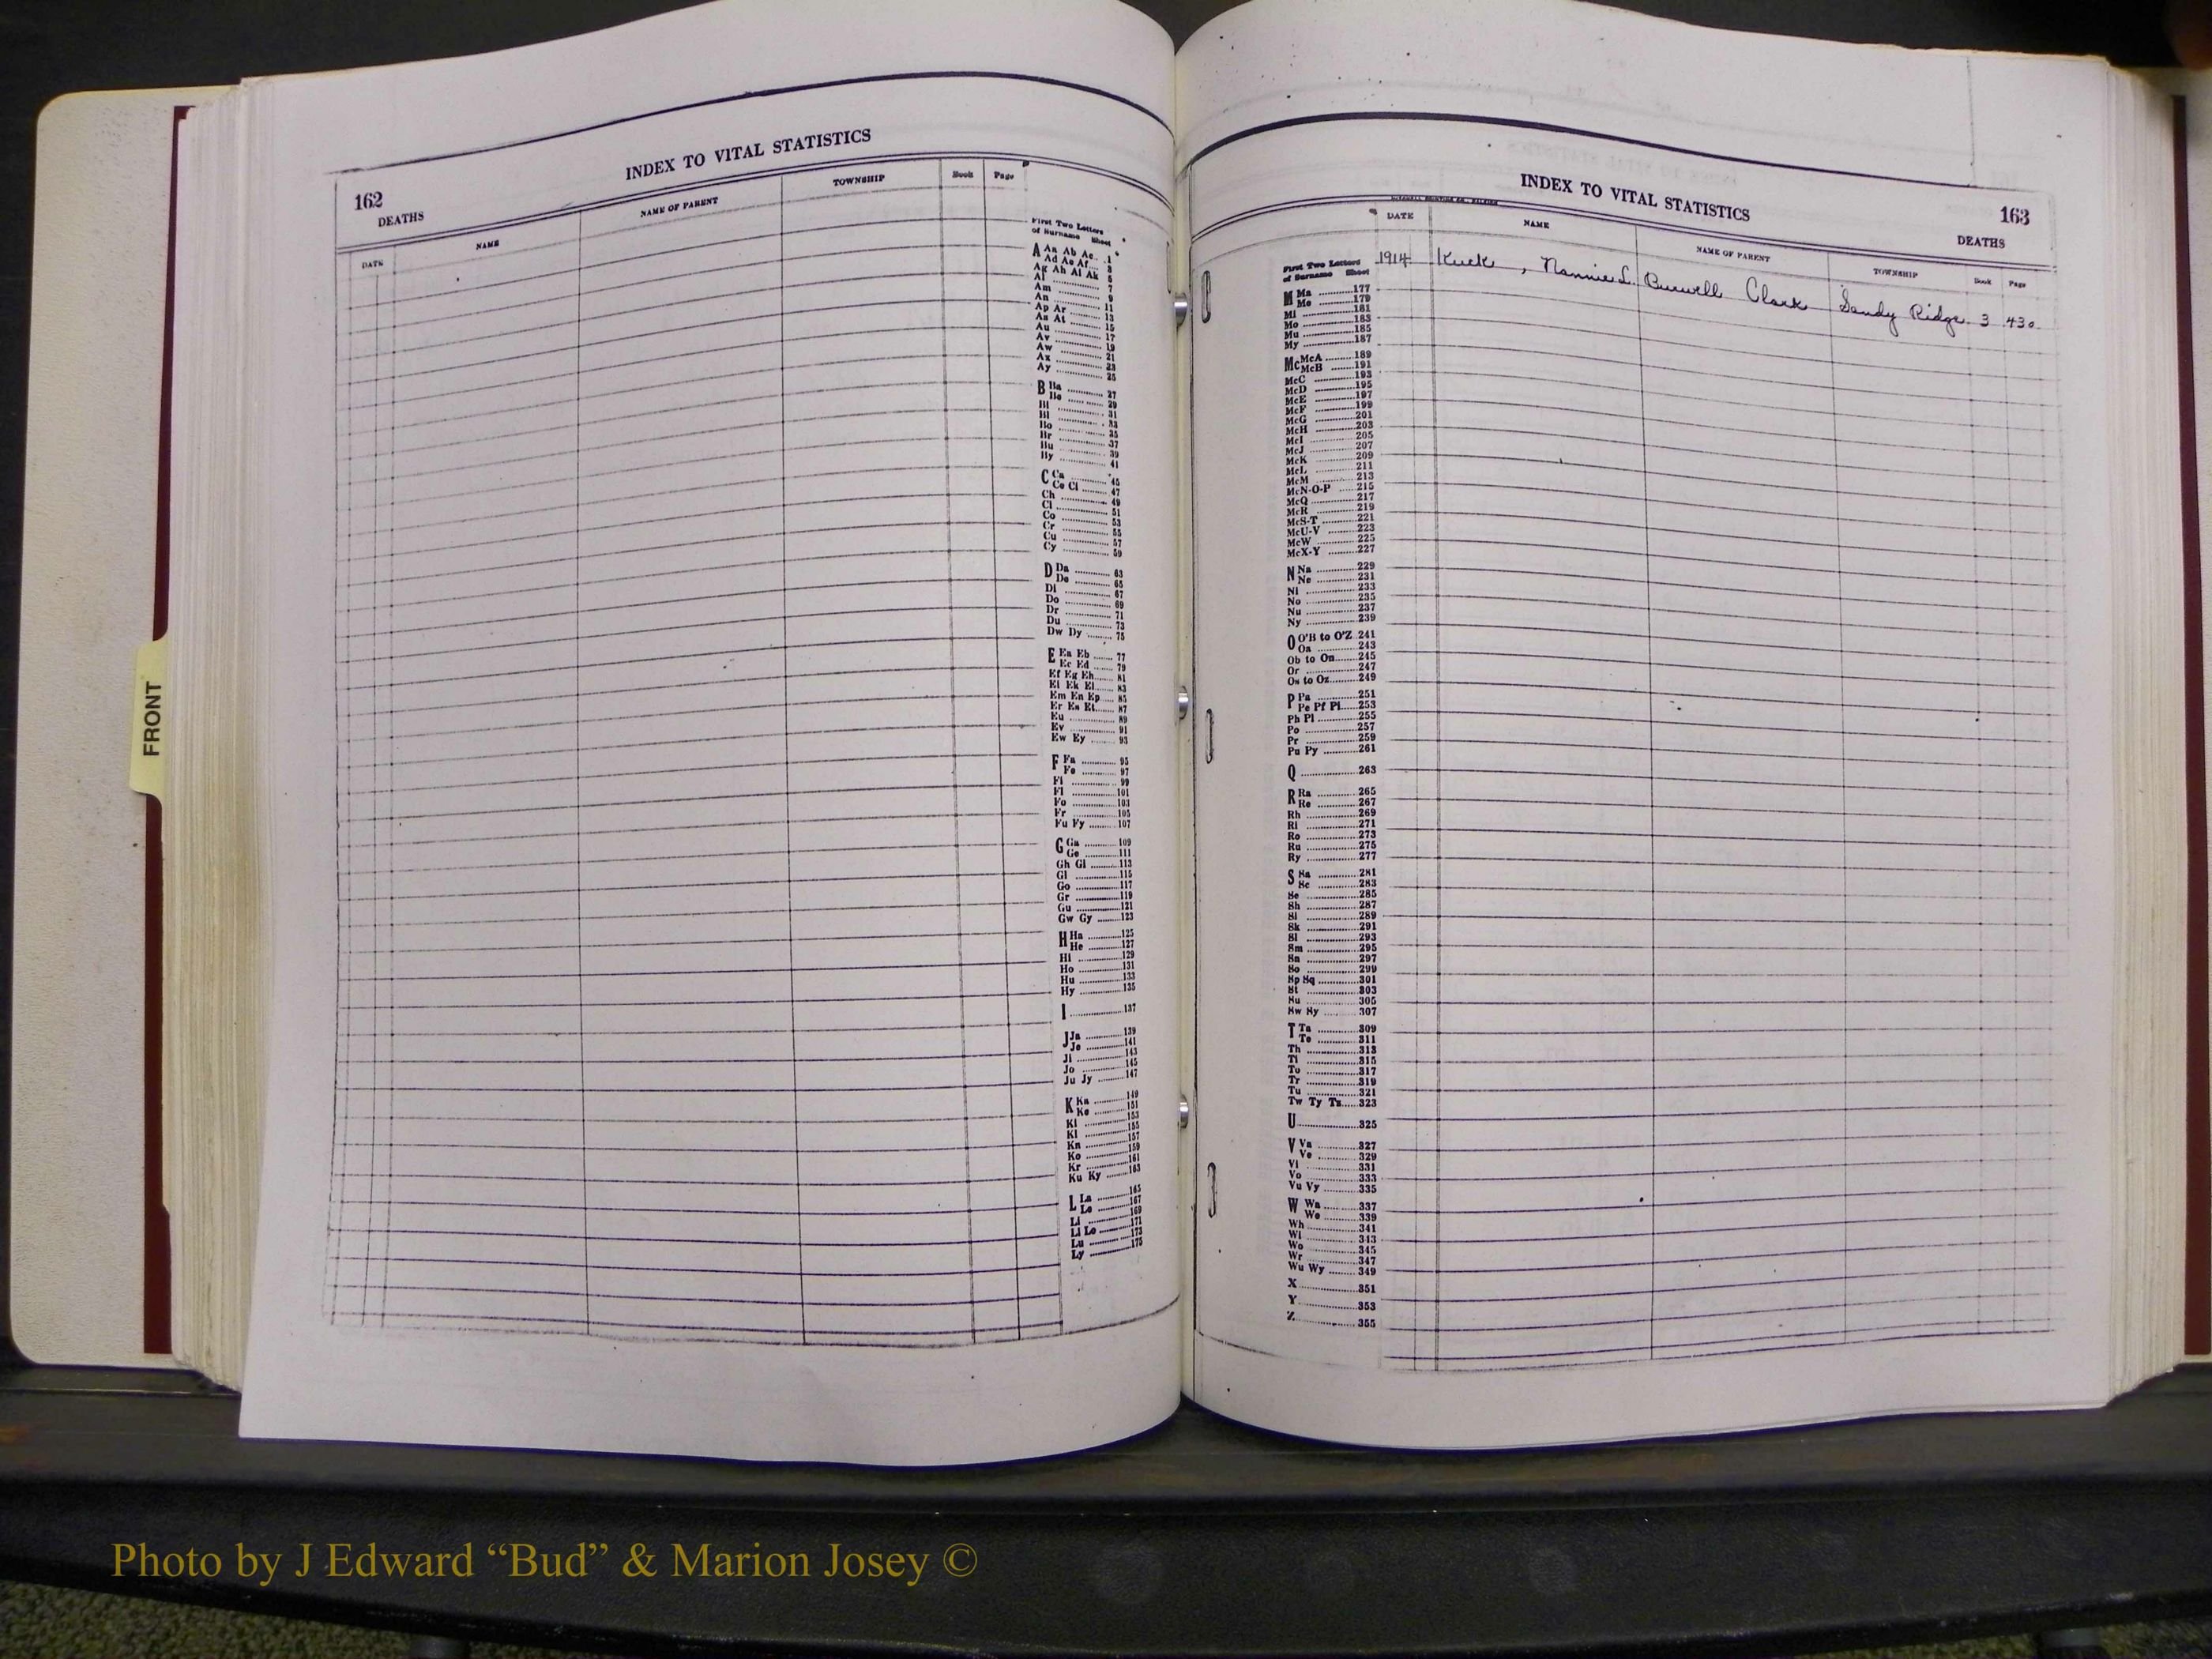 FRONT
162
INDEX TO VITAL STATISTICS
DEATHS
DATE NAME NAME OF PARENT TOWNSHIP Book Page
First Two Letters
of Surname Sheet
A Aa Ab Ac.. 1
Ad Ae Af... 3
Ag Ah Ai Ak 5
Al .......... 7
Am .......... 9
An .......... 11
Ap Ar ....... 13
As At ....... 15
Au .......... 17
Av .......... 19
Aw .......... 21
Ax .......... 23
Ay .......... 25
B Ba .......... 27
Be .......... 29
Bi .......... 31
Bl .......... 33
Bo .......... 35
Br .......... 37
Bu .......... 39
By .......... 41
C Ca .......... 45
Ce Ci ....... 47
Ch .......... 49
Cl .......... 51
Co .......... 53
Cr .......... 55
Cu .......... 57
Cy .......... 59
D Da .......... 63
De .......... 65
Di .......... 67
Do .......... 69
Dr .......... 71
Du .......... 73
Dw Dy ....... 75
E Ea Eb ...... 77
Ec Ed ...... 79
Ef Eg Eh..... 81
Ei Ek El..... 83
Em En Ep..... 85
Er Es Et..... 87
Eu .......... 89
Ev .......... 91
Ew Ey ....... 93
F Fa .......... 95
Fe .......... 97
Fi .......... 99
Fl ..........101
Fo ..........103
Fr ..........105
Fu Fy .......107
G Ga ..........109
Ge ..........111
Gh Gi .......113
Gl ..........115
Go ..........117
Gr ..........119
Gu ..........121
Gw Gy .......123
H Ha ..........125
He ..........127
Hi ..........129
Ho ..........131
Hu ..........133
Hy ..........135
I ..........137
J Ja ..........139
Je ..........141
Ji ..........143
Jo ..........145
Ju Jy .......147
K Ka ..........149
Ke ..........151
Ki ..........153
Kl ..........155
Kn ..........157
Ko ..........159
Kr ..........161
Ku Ky .......163
L La ..........165
Le ..........167
Li ..........169
Ll Lo .......171
Lu ..........173
Ly ..........175
INDEX TO VITAL STATISTICS
163
DEATHS
DATE NAME NAME OF PARENT TOWNSHIP Book Page
1914 Kuck , Nannie L. Burwell Clark Sandy Ridge 3 430
First Two Letters
of Surname Sheet
M Ma ..........177
Me ..........179
Mi ..........181
Mo ..........183
Mu ..........185
My ..........187
Mc McA ..........189
McB ..........191
McC ..........193
McD ..........195
McE ..........197
McF ..........199
McG ..........201
McH ..........203
McI ..........205
McJ ..........207
McK ..........209
McL ..........211
McM ..........213
McN-O-P .....215
McQ ..........217
McR ..........219
McS-T .......221
McU-V .......223
McW ..........225
McX-Y .......227
N Na ..........229
Ne ..........231
Ni ..........233
No ..........235
Nu ..........237
Ny ..........239
O O'B to O'Z 241
Oa ..........243
Ob to On.....245
Or ..........247
Os to Oz.....249
P Pa ..........251
Pe Pf Pi.....253
Ph Pl .......255
Po ..........257
Pr ..........259
Pu Py .......261
Q ..........263
R Ra ..........265
Re ..........267
Rh ..........269
Ri ..........271
Ro ..........273
Ru ..........275
Ry ..........277
S Sa ..........281
Sc ..........283
Se ..........285
Sh ..........287
Si ..........289
Sk ..........291
Sl ..........293
Sm ..........295
Sn ..........297
So ..........299
Sp Sq .......301
St ..........303
Su ..........305
Sw Sy .......307
T Ta ..........309
Te ..........311
Th ..........313
Ti ..........315
To ..........317
Tr ..........319
Tu ..........321
Tw Ty Tz.....323
U ..........325
V Va ..........327
Ve ..........329
Vi ..........331
Vo ..........333
Vu Vy .......335
W Wa ..........337
We ..........339
Wh ..........341
Wi ..........343
Wo ..........345
Wr ..........347
Wu Wy .......349
X ..........351
Y ..........353
Z ..........355
Photo by J Edward “Bud” & Marion Josey ©